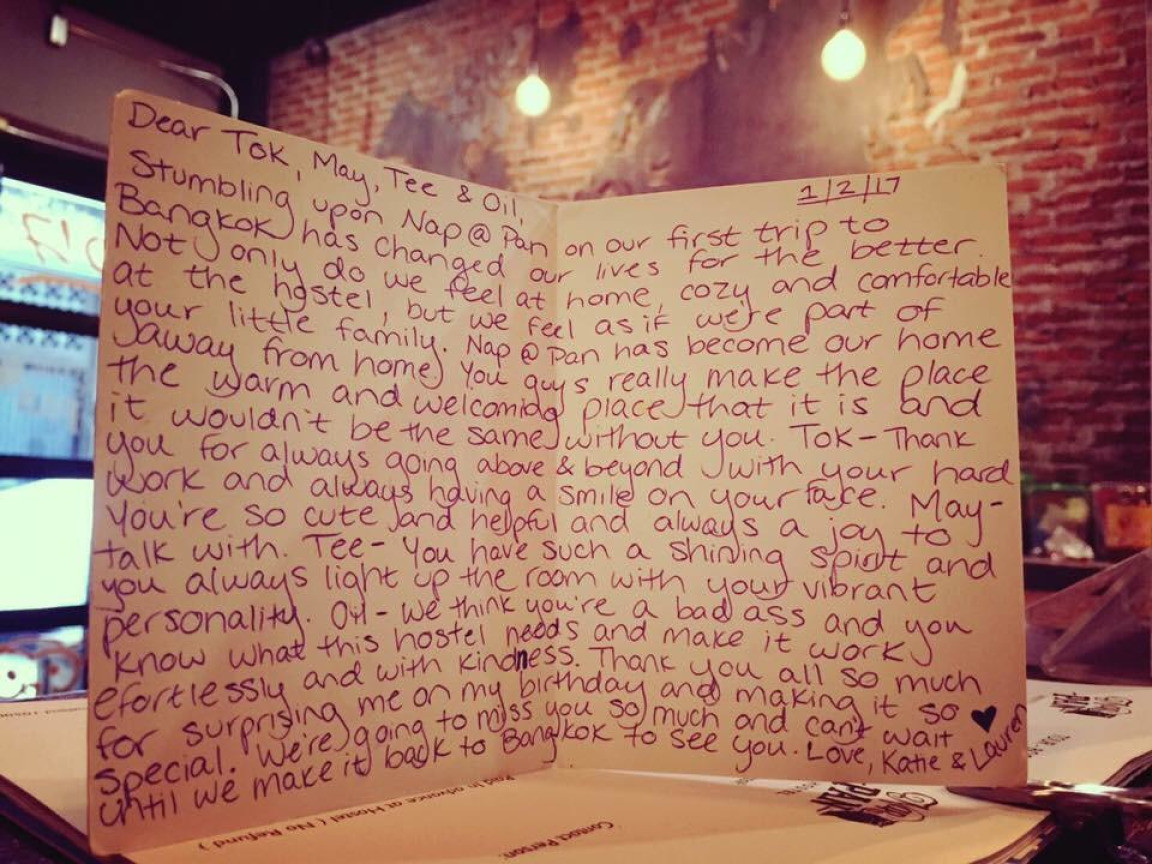 1/2/17
Dear Tok, May, Tee & Oil,
Stumbling upon Nap @ Pan on our first trip to
Bangkok has changed our lives for the better.
Not only do we feel at home, cozy and comfortable
at the hostel, but we feel as if we're part of
your little family. Nap @ Pan has become our home
away from home. You guys really make the place
the warm and welcoming place that it is and
it wouldn't be the same without you. Tok - Thank
you for always going above & beyond with your hard
work and always having a smile on your face. May-
You're so cute and helpful and always a joy to
talk with. Tee - You have such a shining spirit and
you always light up the room with your vibrant
personality. Oil - we think you're a bad ass and you
know what this hostel needs and make it work
efortlessly and with kindness. Thank you all so much
for surprising me on my birthday and making it so
special. We're going to miss you so much and can't wait
until we make it back to Bangkok to see you. Love, Katie & Lauren
Paid in advance at Hostel ( No Refund )
Contact Person:
PAN